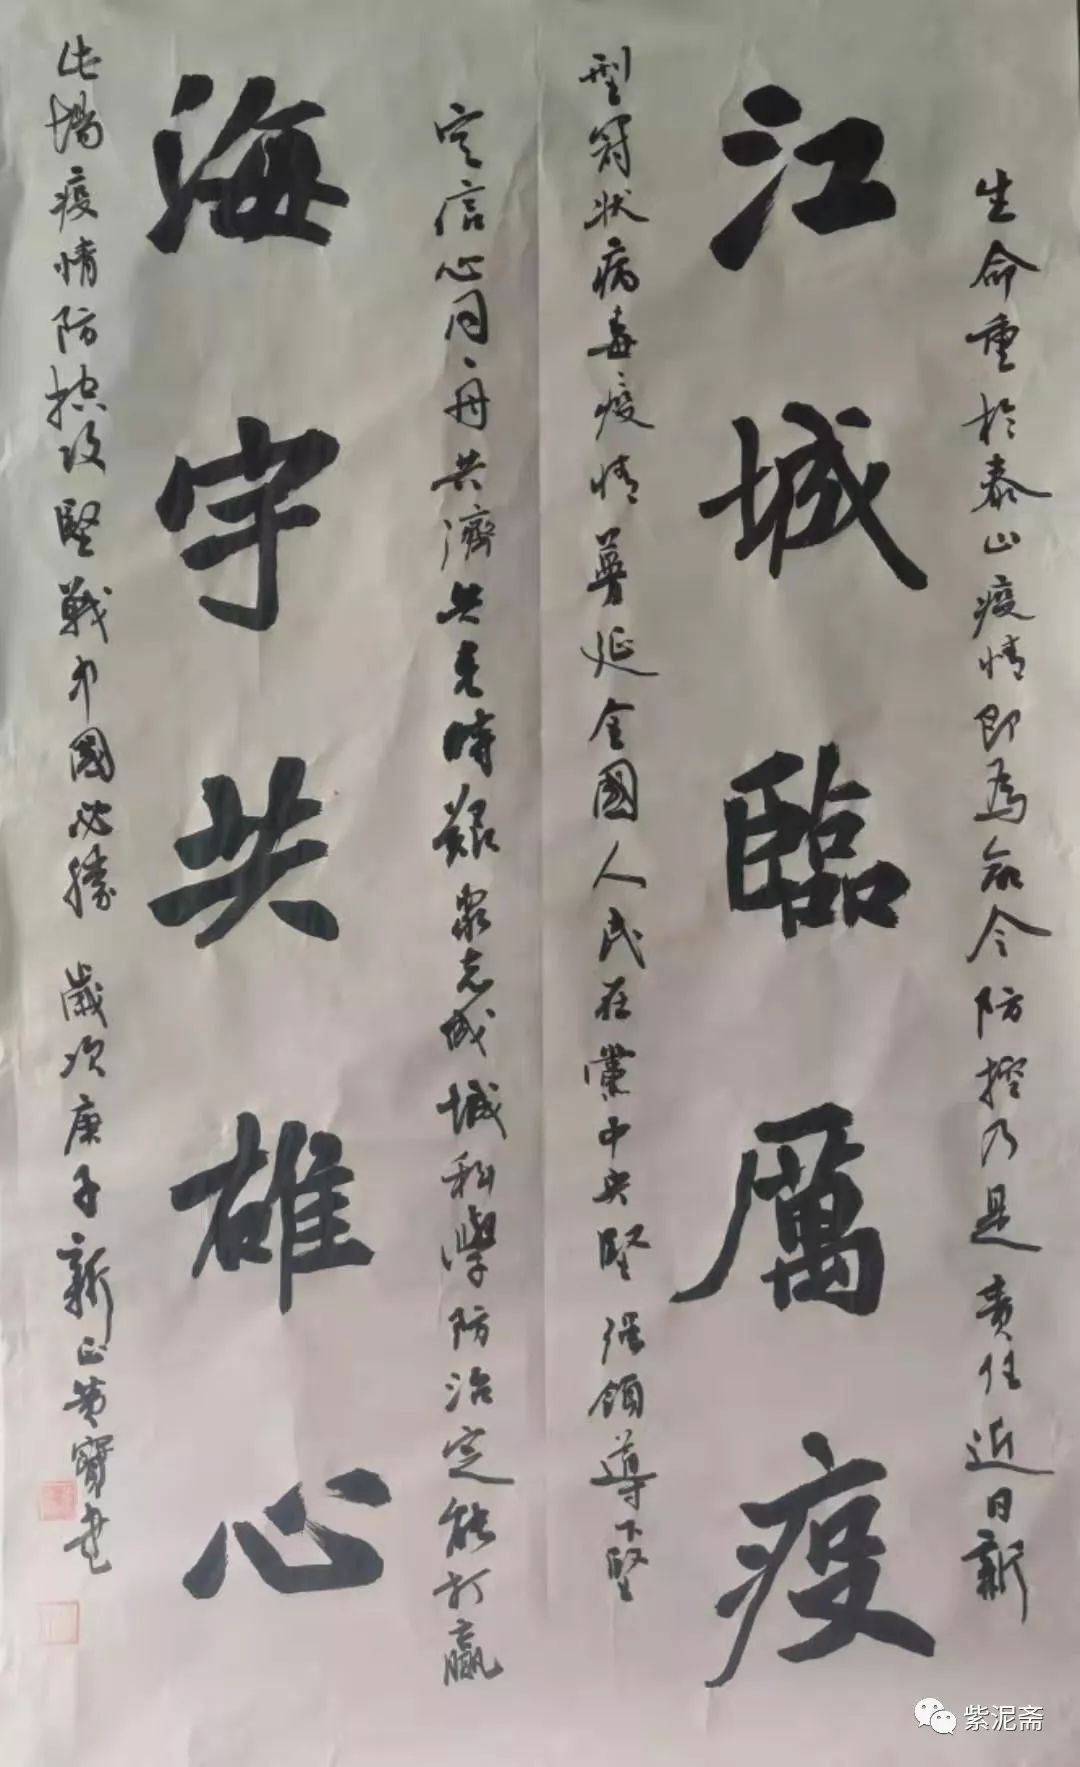 生命重於泰山疫情即為命令防控乃是責任近日新
江城臨厲疫
型冠状病毒疫情蔓延全國人民在黨中央堅强領導下堅
定信心同舟共濟共克時艱眾志成城科學防治定能打贏
海宇共雄心
此場疫情防控攻堅戰中國必勝 歲次庚子新正黄寶書
紫泥斋